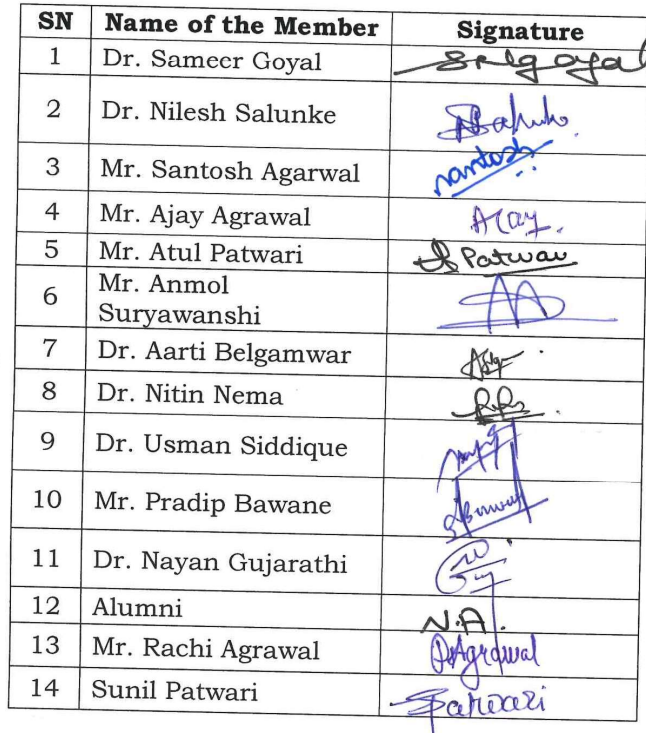 SN Name of the Member Signature
1 Dr. Sameer Goyal Srigoyal
2 Dr. Nilesh Salunke
3 Mr. Santosh Agarwal santosh
4 Mr. Ajay Agrawal
5 Mr. Atul Patwari Patwari
6 Mr. Anmol
Suryawanshi
7 Dr. Aarti Belgamwar
8 Dr. Nitin Nema
9 Dr. Usman Siddique
10 Mr. Pradip Bawane
11 Dr. Nayan Gujarathi
12 Alumni N.A.
13 Mr. Rachi Agrawal Agrawal
14 Sunil Patwari